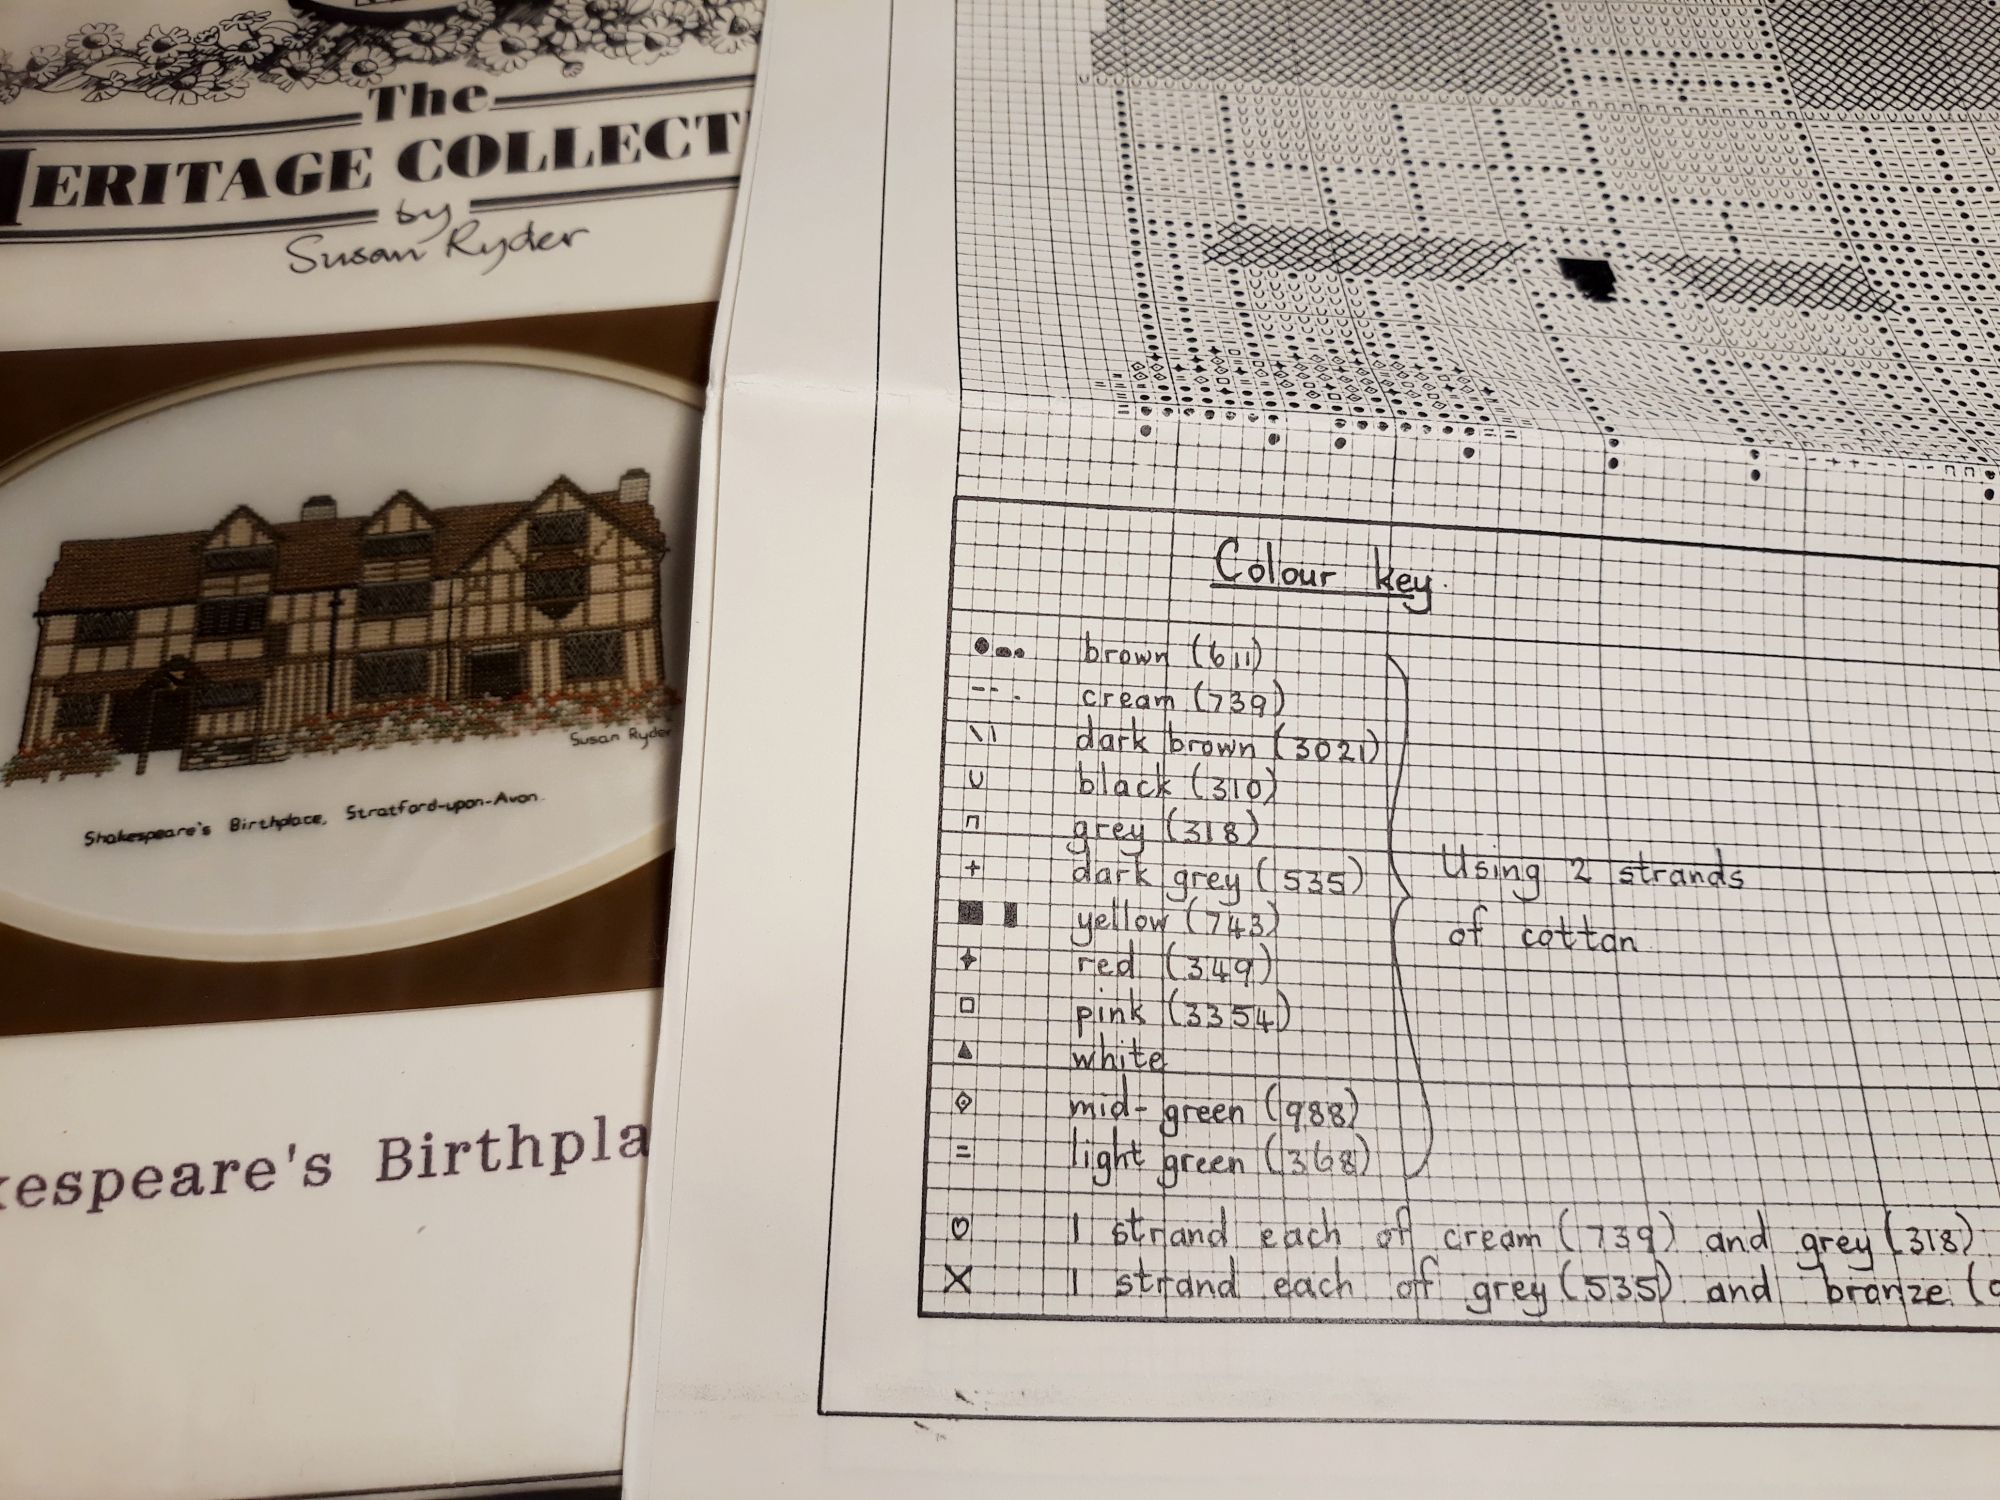 The
HERITAGE COLLECT
by
Susan Ryder
Susan Ryder
Shakespeare's Birthplace, Stratford-upon-Avon.
kespeare's Birthpla
Colour key.
brown (611)
cream (739)
dark brown (3021)
black (310)
grey (318)
dark grey (535)
yellow (743)
red (349)
pink (3354)
white
mid-green (988)
light green (368)
Using 2 strands
of cottan
1 strand each of cream (739) and grey (318).
1 strand each of grey (535) and bronze (